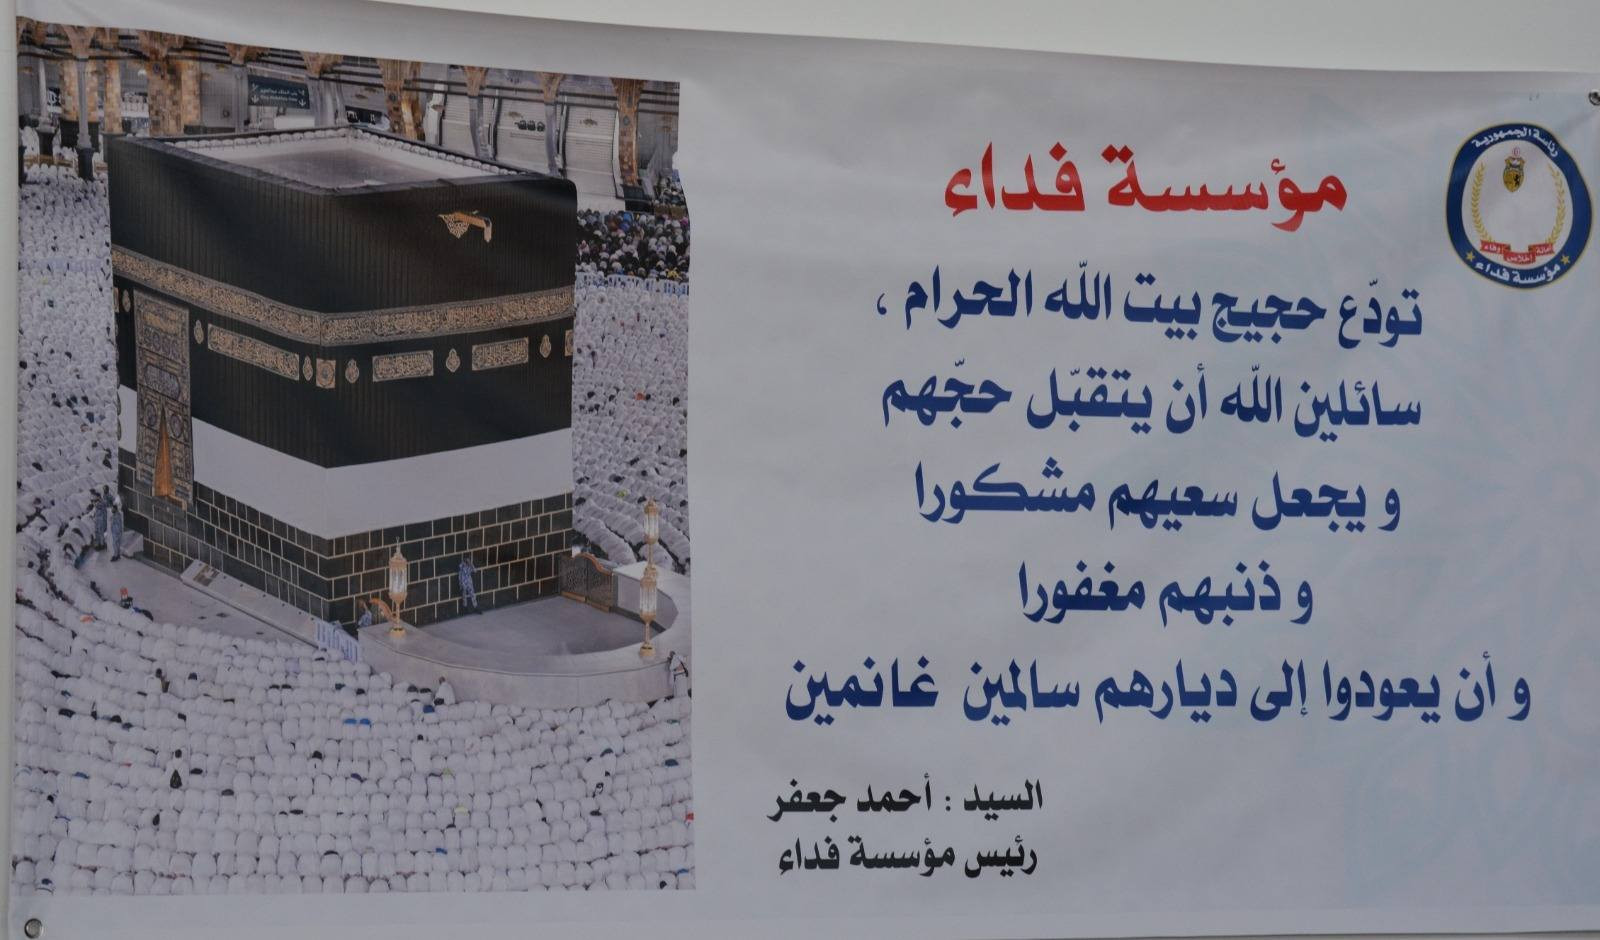 مؤسسة فداء
رئاسة الجمهورية
أمانة إخلاص وفاء
مؤسسة فداء
تودّع حجيج بيت الله الحرام ،
سائلين الله أن يتقبّل حجّهم
و يجعل سعيهم مشكورا
و ذنبهم مغفورا
و أن يعودوا إلى ديارهم سالمين غانمين
السيد : أحمد جعفر
رئيس مؤسسة فداء